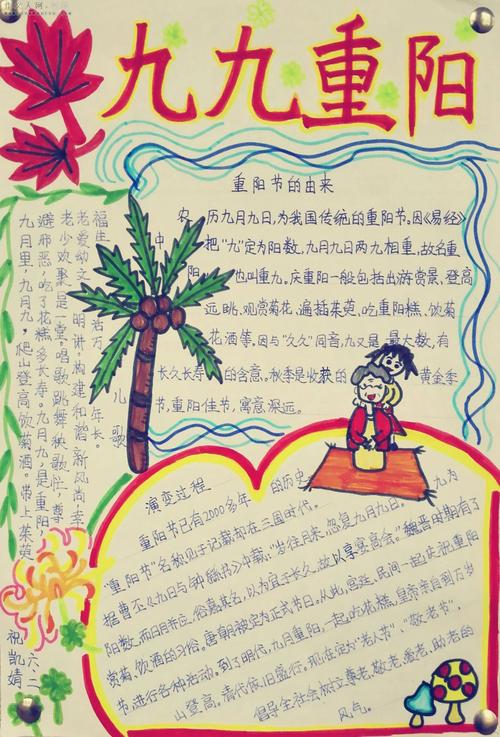 九九重阳
重阳节的由来
农历九月九日,为我国传统的重阳节。因《易经》
中把“九”定为阳数,九月九日两九相重,故名重
阳,也叫重九。庆重阳一般包括出游赏景、登高
远眺、观赏菊花、遍插茱萸、吃重阳糕、饮菊
花酒等,因与“久久”同音,九又是最大数,有
长久长寿的含意,秋季是收获的黄金季
节,重阳佳节,寓意深远。
儿歌
九月里,九月九,爬山登高饮菊酒。带上茱萸
避邪恶,吃了花糕多长寿。九月九,是重阳,
老少欢聚是一堂。唱歌跳舞秧歌忙,尊
老爱幼文明讲。构建和谐新风尚,幸
福生活万年长。
演变过程
重阳节已有2000多年的历史
“重阳节”名称见于记载却在三国时代。
据曹丕《九日与钟繇书》中载:“岁往月来,忽复九月九日。九为
阳数,而日月并应,俗嘉其名,以为宜于长久,故以享宴高会。”魏晋时期有了
赏菊、饮酒的习俗。唐朝被定为正式节日。从此,宫廷、民间一起庆祝重阳
节,进行各种活动。到了明代,九月重阳,一起吃花糕,皇帝亲自到万岁
山登高。清代依旧盛行。现在定为“老人节”、“敬老节”,
倡导全社会树立尊老、敬老、爱老、助老的
风气。
六.二
祝凯婧